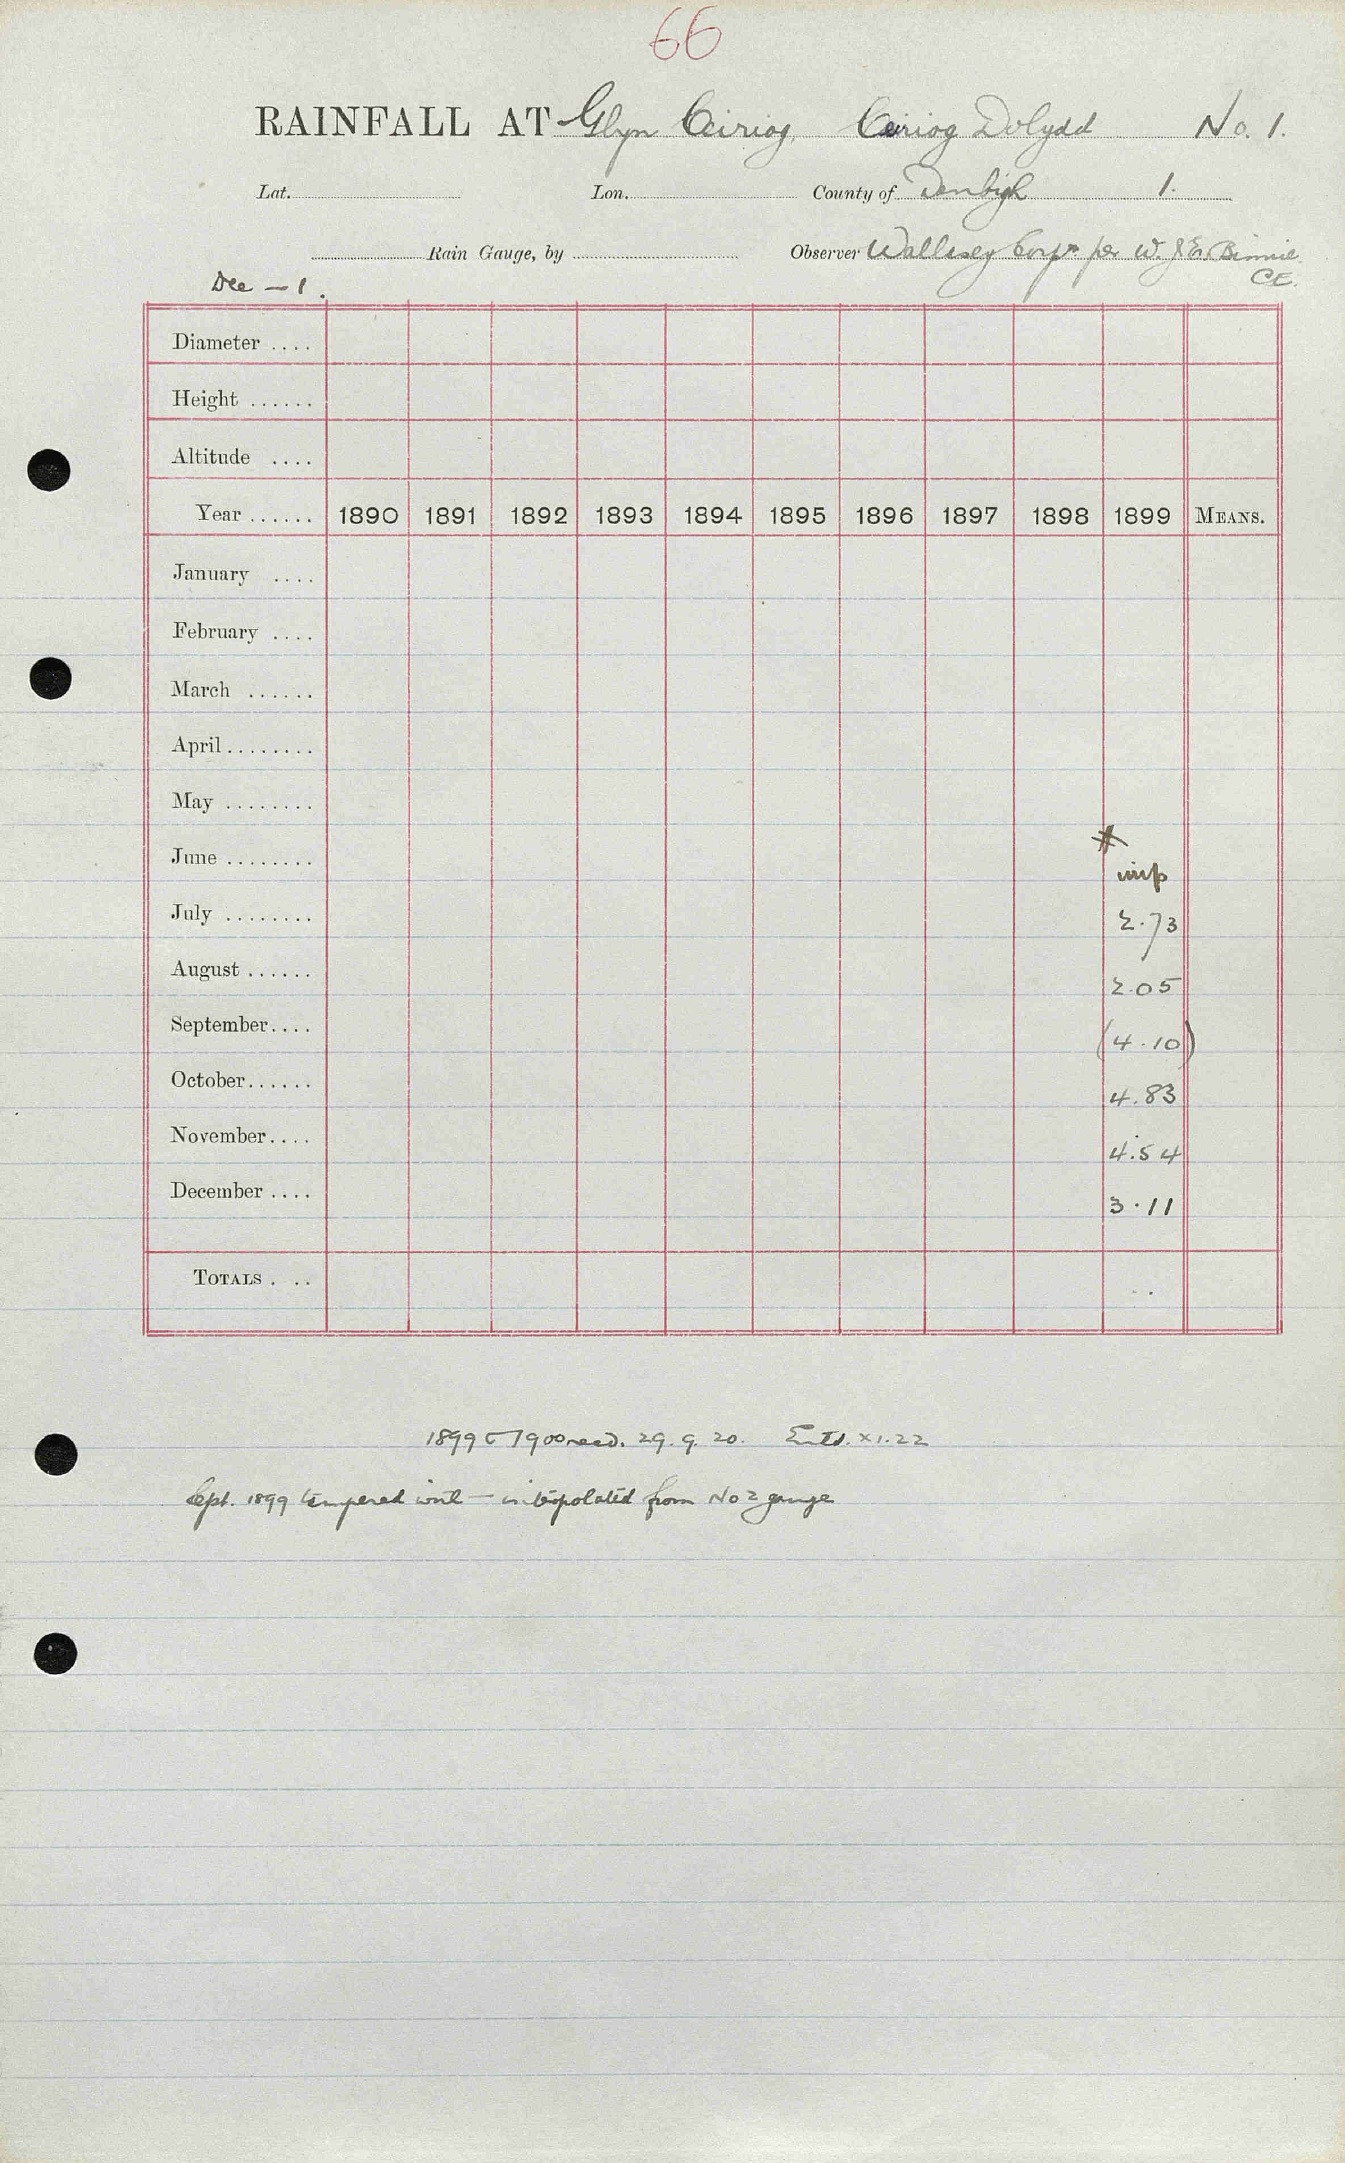 66
RAINFALL AT Glyn Ceiriog, Ceiriog Dolydd No. 1.
Lat. Lon. County of Denbigh 1.
Rain Gauge, by Observer Wallasey Corpn per W. J. E. Binnie
C.E.
Dec — 1.
Diameter ....
Height ......
Altitude ....
Year ...... 1890 1891 1892 1893 1894 1895 1896 1897 1898 1899 MEANS.
January ....
February ....
March ......
April ........
May ........
June ........ imp
July ........ 2.73
August ...... 2.05
September .... (4.10)
October ...... 4.83
November .... 4.54
December .... 3.11
TOTALS . ..
1899 1900 recd. 29. 9. 20. Entd. XI.22
Sept. 1899 tempered with — interpolated from No 2 gauge